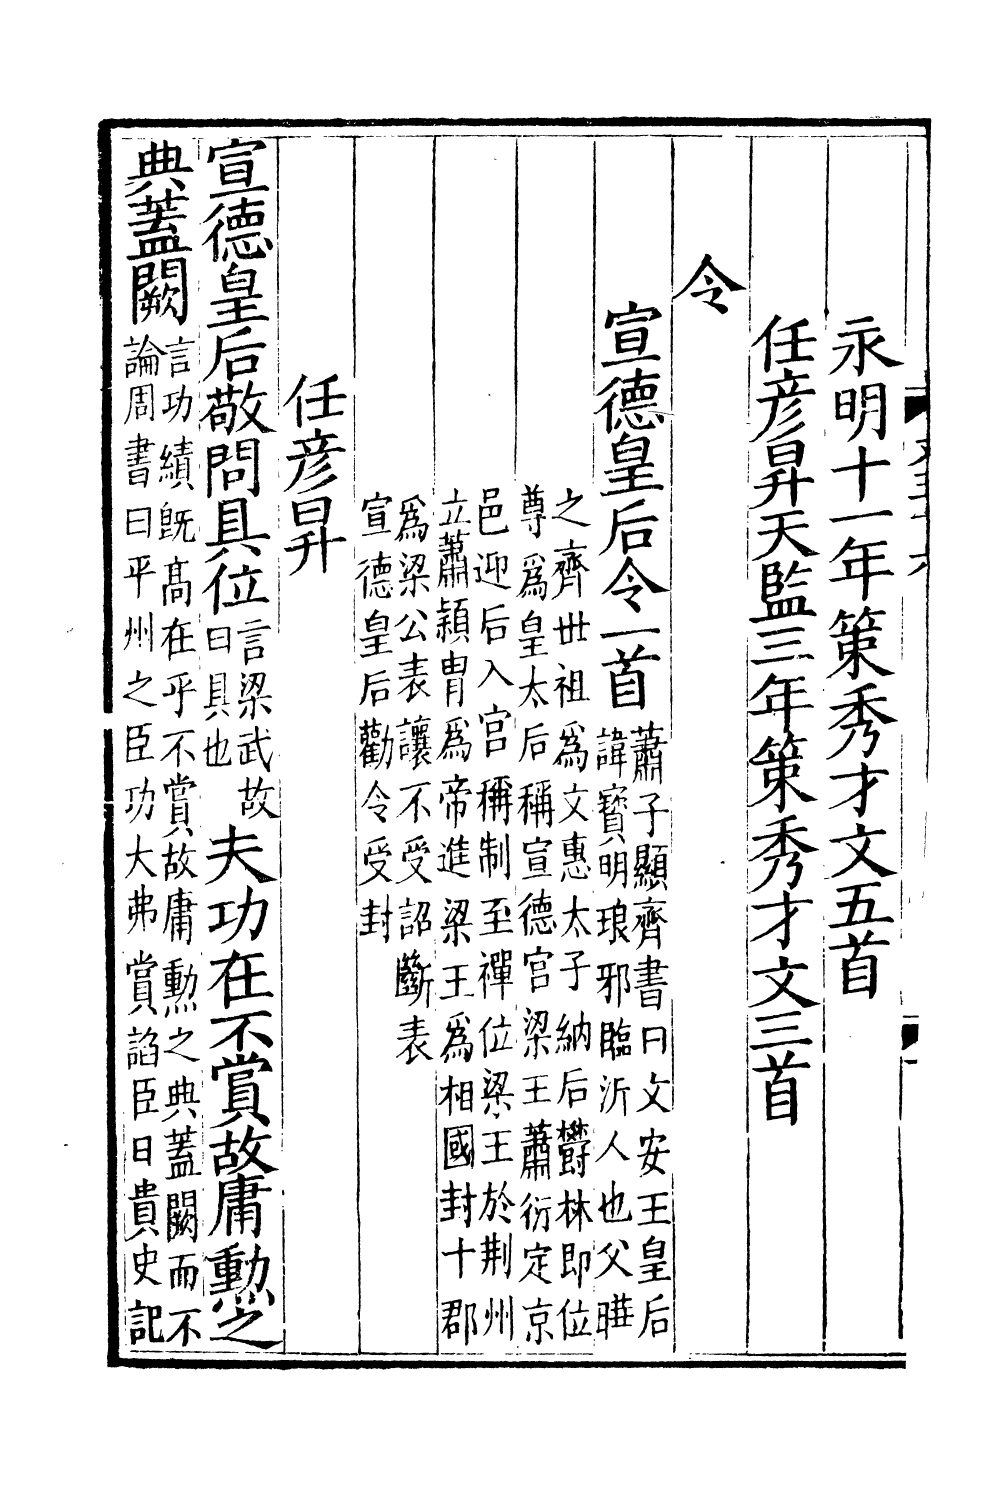 永明十一年策秀才文五首
任彦昇天監三年策秀才文三首
令
宣德皇后令一首
蕭子顯齊書曰文安王皇后
諱寶明琅邪臨沂人也父曄
之齊世祖爲文惠太子納后欎林即位
尊爲皇太后稱宣德宫梁王蕭衍定京
邑迎后入宫稱制至禪位梁王於荆州
立蕭穎胄爲帝進梁王爲相國封十郡
爲梁公表讓不受詔斷表
宣德皇后勸令受封
任彦昇
宣德皇后敬問具位
言梁武故
曰具也
夫功在不賞故庸勳之
典蓋闕
言功績既髙在乎不賞故庸勳之典蓋闕而不
論周書曰平州之臣功大弗賞諂臣日貴史記